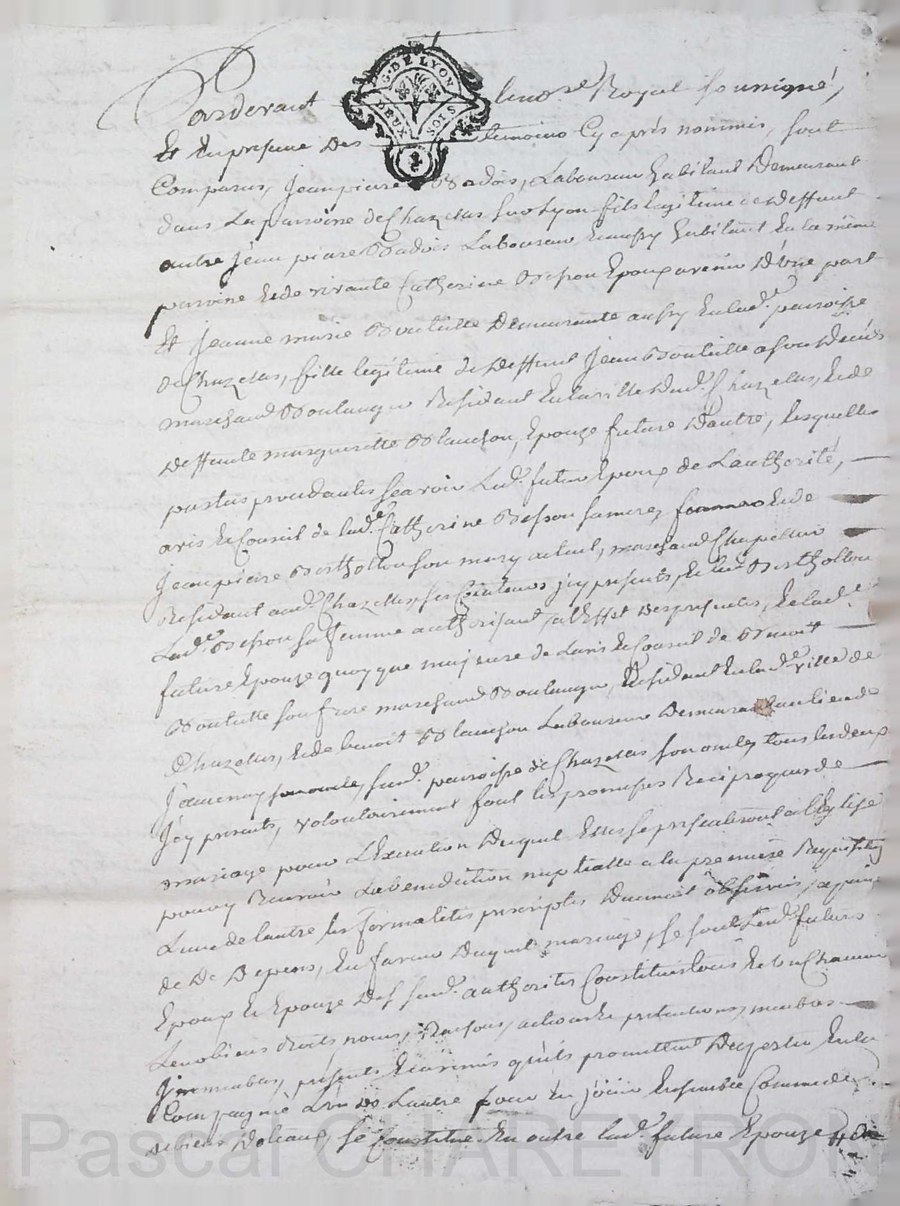 G. DE LYON
DEUX SOLS
Pardevant le nore Royal soussigné,
Et En presence des temoins Cy aprés nommés, sont
Comparus, Jean piere Badois, Laboureur habitant Demeurant
dans La paroisse de Chazelles sur Lyon fils legitime de deffunt
autre Jean piere Badois Laboureur Aussy habitant En la même
paroisse Et de vivante Catherine Besson Epoux avenir D'une part
Et Jeanne marie Bouteille Demeurante aussy En lad.e paroisse
de Chazelles, fille legitime de deffunt Jean Bouteille a son Deces
marchand Boulanger Residant En la ville dud. Chazelles, Et de
deffunte margueritte Blanchon, Epouze future D'autre, lesquelles
parties procedantes sçavoir Led. futur Epoux de L'authorité,
avis Et Conseil de lad.e Catherine Besson sa mere, Et de
Jean piere Berthollon son mary actuel, marchand Chapellier
Residant aud. Chazelles, jcy presents, Et led. Berthollon
Lad.e Besson sa femme authorisant a l'Effet des presentes, Et lad.e
future Epouze quoy que majeure de L'avis Et Conseil de Benoit
Bouteille son frere marchand Boulanger, Residant En lad.e ville de
Chazelles, Et de benoit Blanchon Laboureur Demeurant au lieu de
sud. paroisse de Chazelles son oncle, tous les deux
Jcy presents, volontairement font les promesses Reciproques de
mariage pour L'Execution Duquel Elles se presenteront a l'Eglise
pour y Recevoir La benediction nuptialle a la premiere Requisition
L'une de L'autre les formalités prescriptes Dument observées, a peine
de De Depens, En faveur Duquel mariage, se sont Lesd. futurs
Epoux Et Epouze Des susd. authorités Constitués tous Et un Chacun
Leurs biens droits, noms, Raisons, actions Et pretentions, meubles
Jmmeubles, presents Et avenir qu'ils promettent D'aporter En la
Compagnie L'un De L'autre pour En jouir Ensemble Comme de
se Constitue En outre lad.e future Epouze
Pascal CHAREYRON